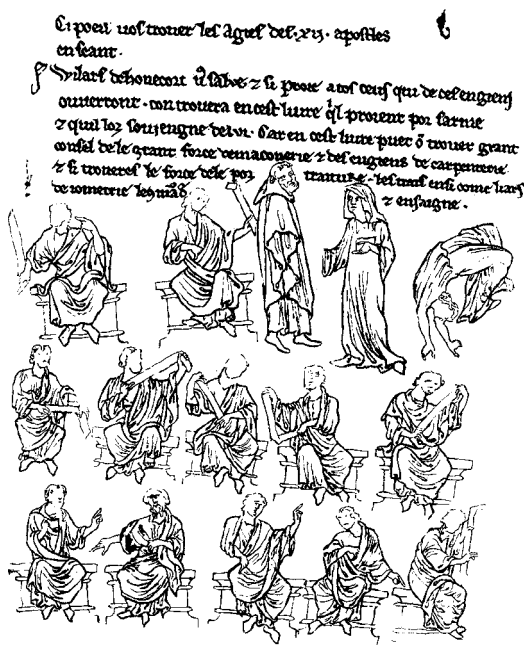 Ci poeis vos trover les agies des .xij. apostles
en seant.
Wilars dehonecort v⁹ salue ⁊ si proie a tos ceus qui de ces engiens
ouverront. con trovera en cest livre q̾l proient por sarme
⁊ quil lor soviengne de lui. Car en cest livre puet ō trover grant
consel de le grant force de maconerie ⁊ des engiens de carpenterie
⁊ si troveres le force de le portraiture. les trais ensi come li ars
de iometrie le ⁊ ensaigne.